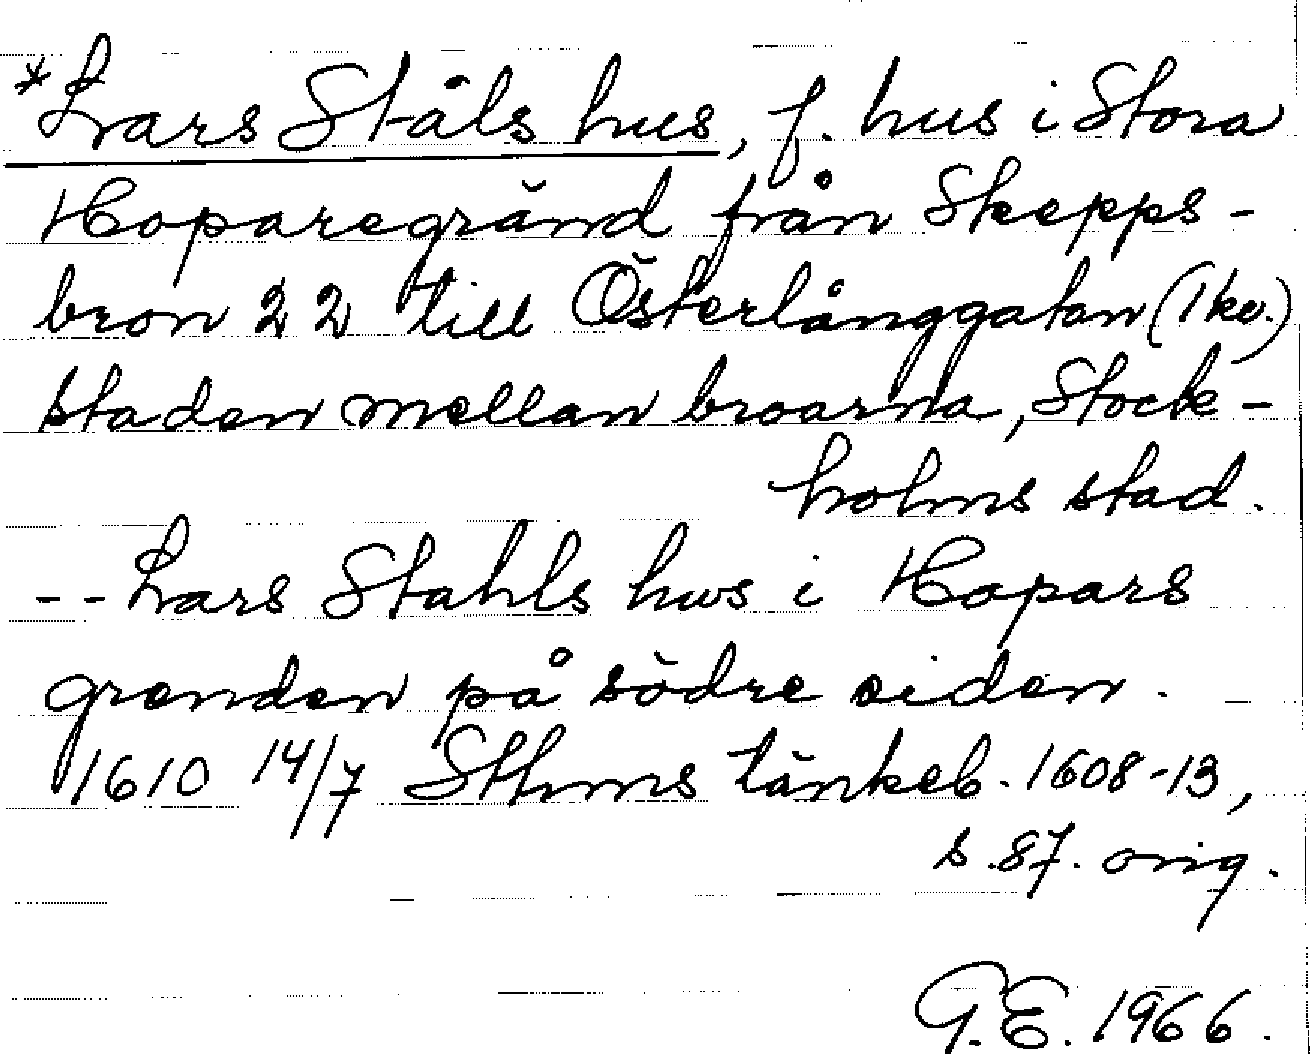 *Lars Ståls hus, f. hus i Stora
Hoparegränd från Skepps-
bron 22 till Österlånggatan (1 kv.)
staden mellan broarna, Stock-
holms stad.
-- Lars Stahls hws i Hopars
grenden på södre siden.
1610 14/7 Sthms tänkeb. 1608-13,
s. 87. orig.
G.E. 1966.